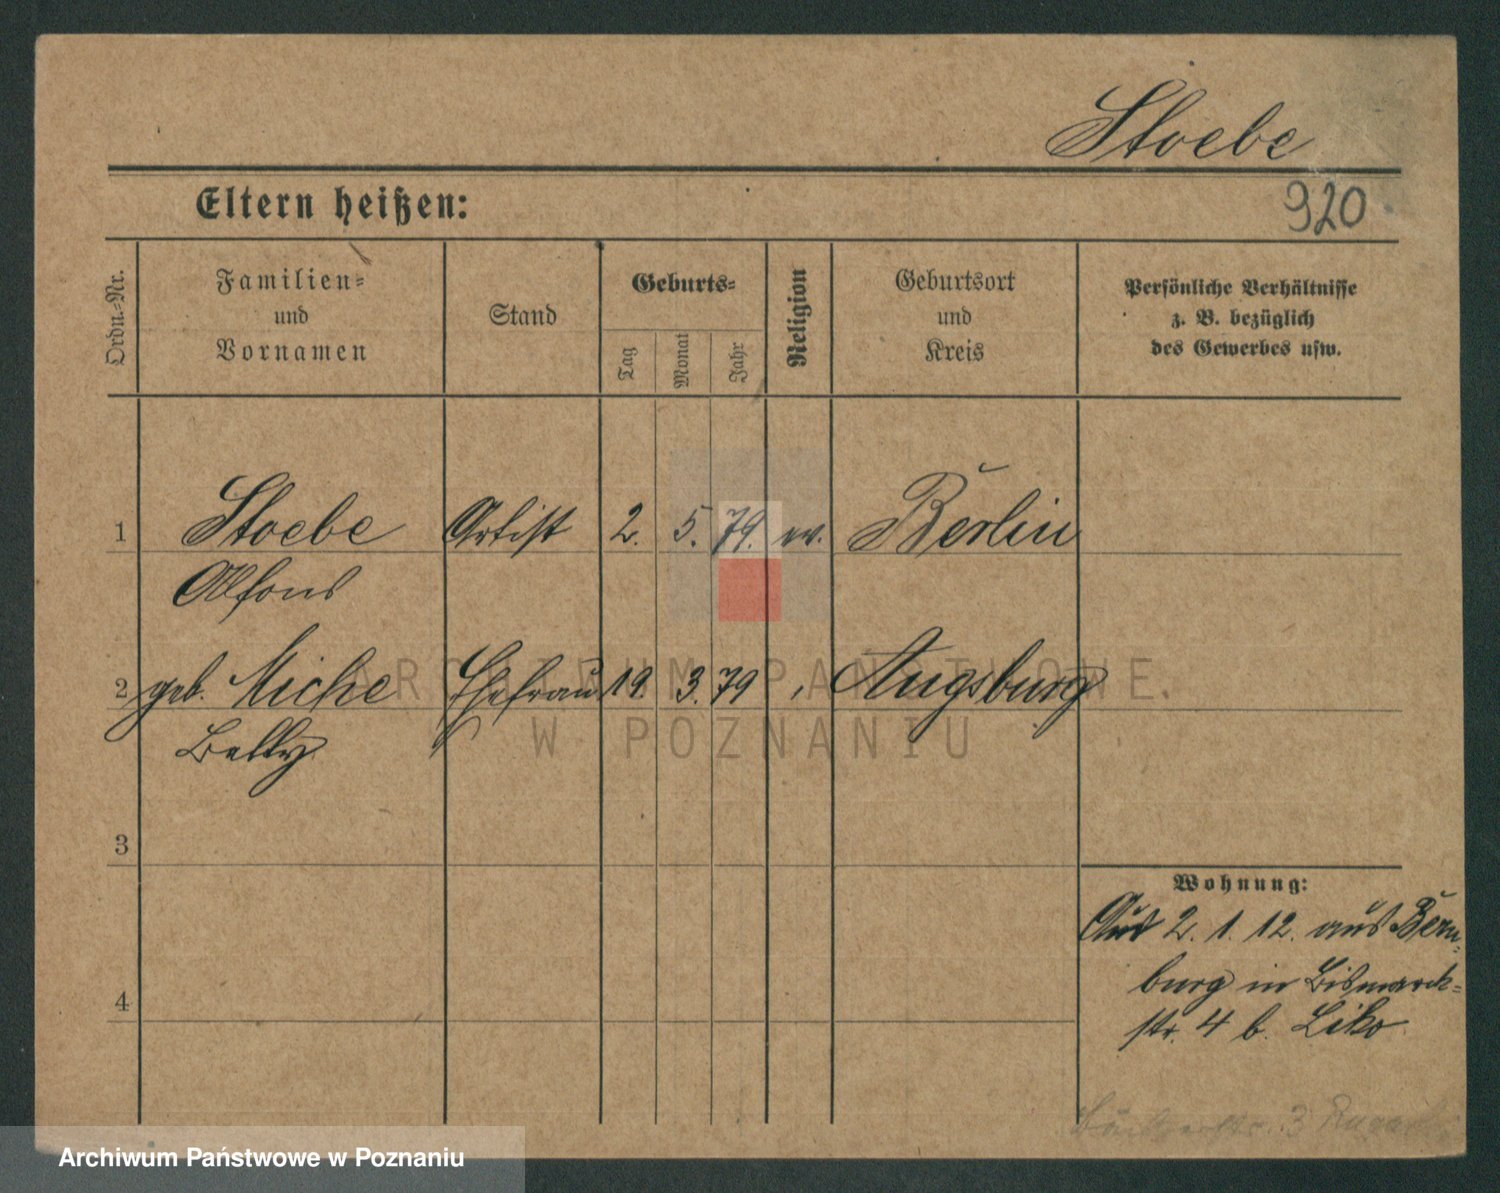 Stoebe
920
Eltern heißen:
Ordn.-Nr.
Familien-
und
Vornamen
Stand
Geburts-
Tag
Monat
Jahr
Religion
Geburtsort
und
Kreis
Persönliche Verhältnisse
z. B. bezüglich
des Gewerbes usw.
1 Stoebe Artist 2. 5. 79. ev. Berlin
Alfons
2 geb. Miche Ehefrau 19. 3. 79 Augsburg
Betty
3
4
Wohnung:
2. 1. 12. aus Bern-
burg in Bismarck-
str. 4 b. Liko
3
ARCHIWUM PAŃSTWOWE
W POZNANIU
Archiwum Państwowe w Poznaniu